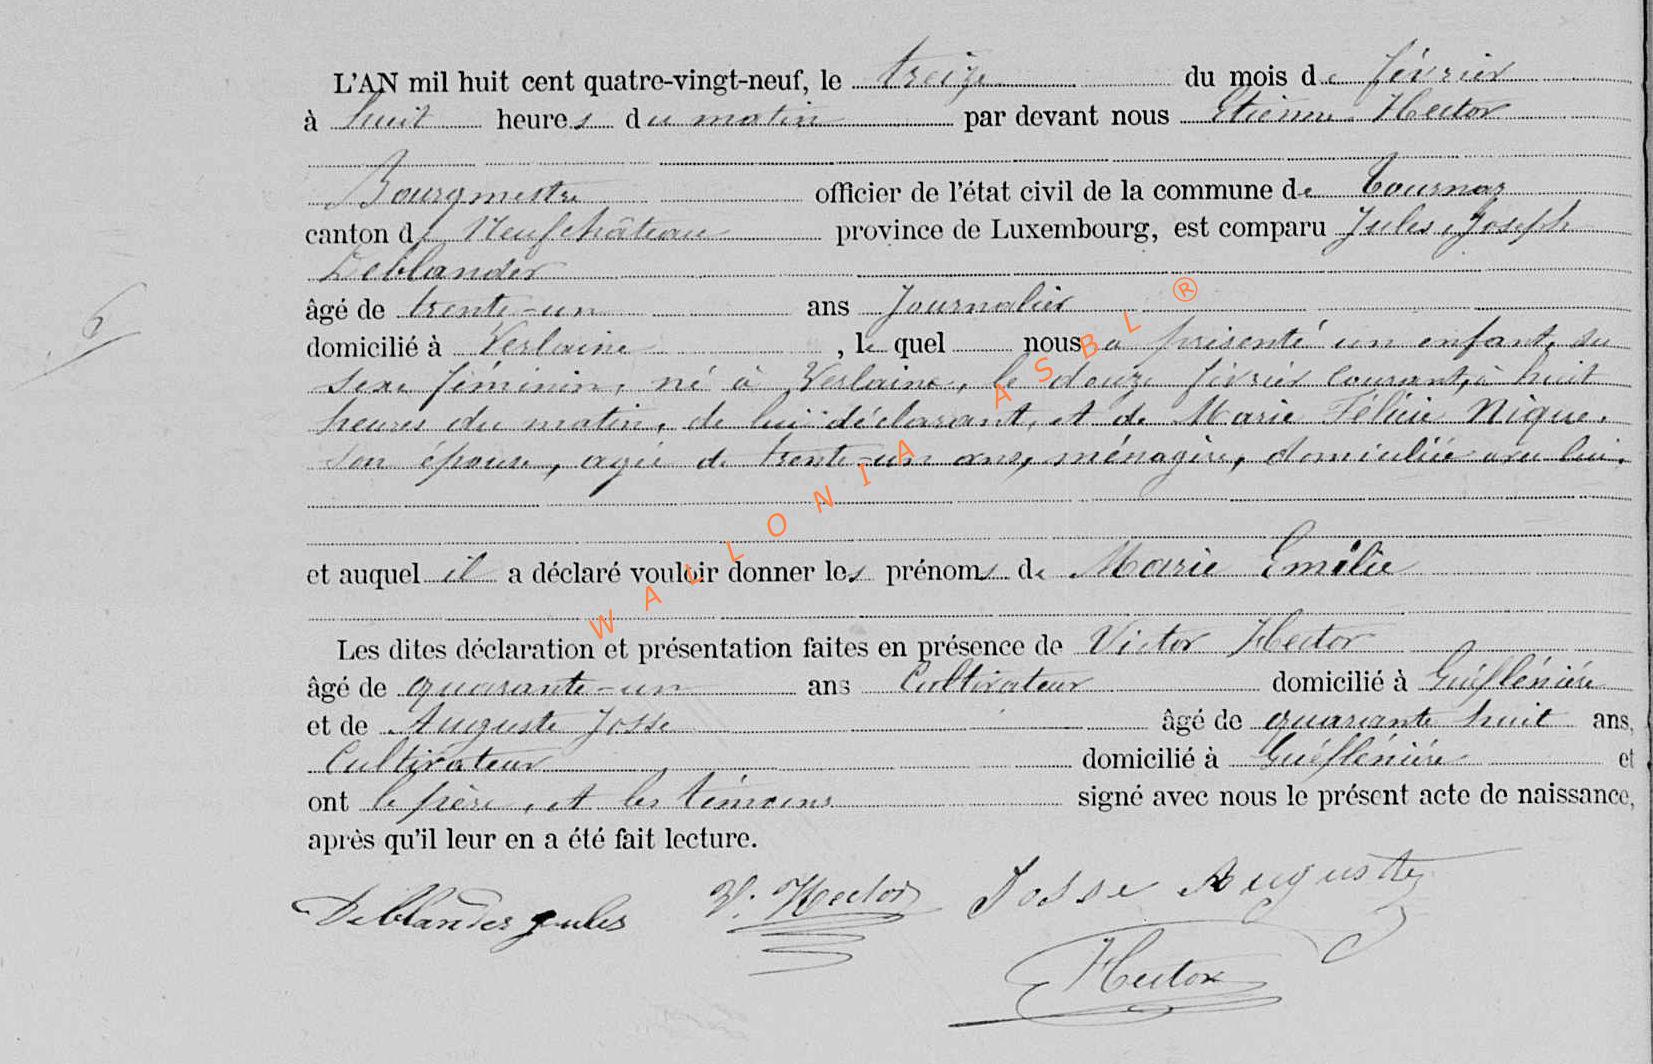 L'AN mil huit cent quatre-vingt-neuf, le treize du mois de février
à huit heures du matin par devant nous Etienne Hector
Bourgmestre officier de l'état civil de la commune de Tournay
canton de Neufchâteau province de Luxembourg, est comparu Jules Joseph
Deblander
âgé de trente-un ans Journalier
6
domicilié à Verlaine, le quel nous a présenté un enfant du
sexe féminin, né à Verlaine, le douze février courant, à huit
heures du matin, de lui déclarant, et de Marie Félicie Nique,
son épouse, agée de trente-un ans, ménagère, domiciliée avec lui.
et auquel il a déclaré vouloir donner les prénoms de Marie Emélie
Les dites déclaration et présentation faites en présence de Victor Hector
âgé de quarante-un ans Cultivateur domicilié à
et de Auguste Josse âgé de quarante huit ans,
Cultivateur domicilié à et
ont le père, et les témoins signé avec nous le présent acte de naissance,
après qu'il leur en a été fait lecture.
Deblander Jules V. Hector Josse Auguste
Hector
WALLONIA ASBL ®